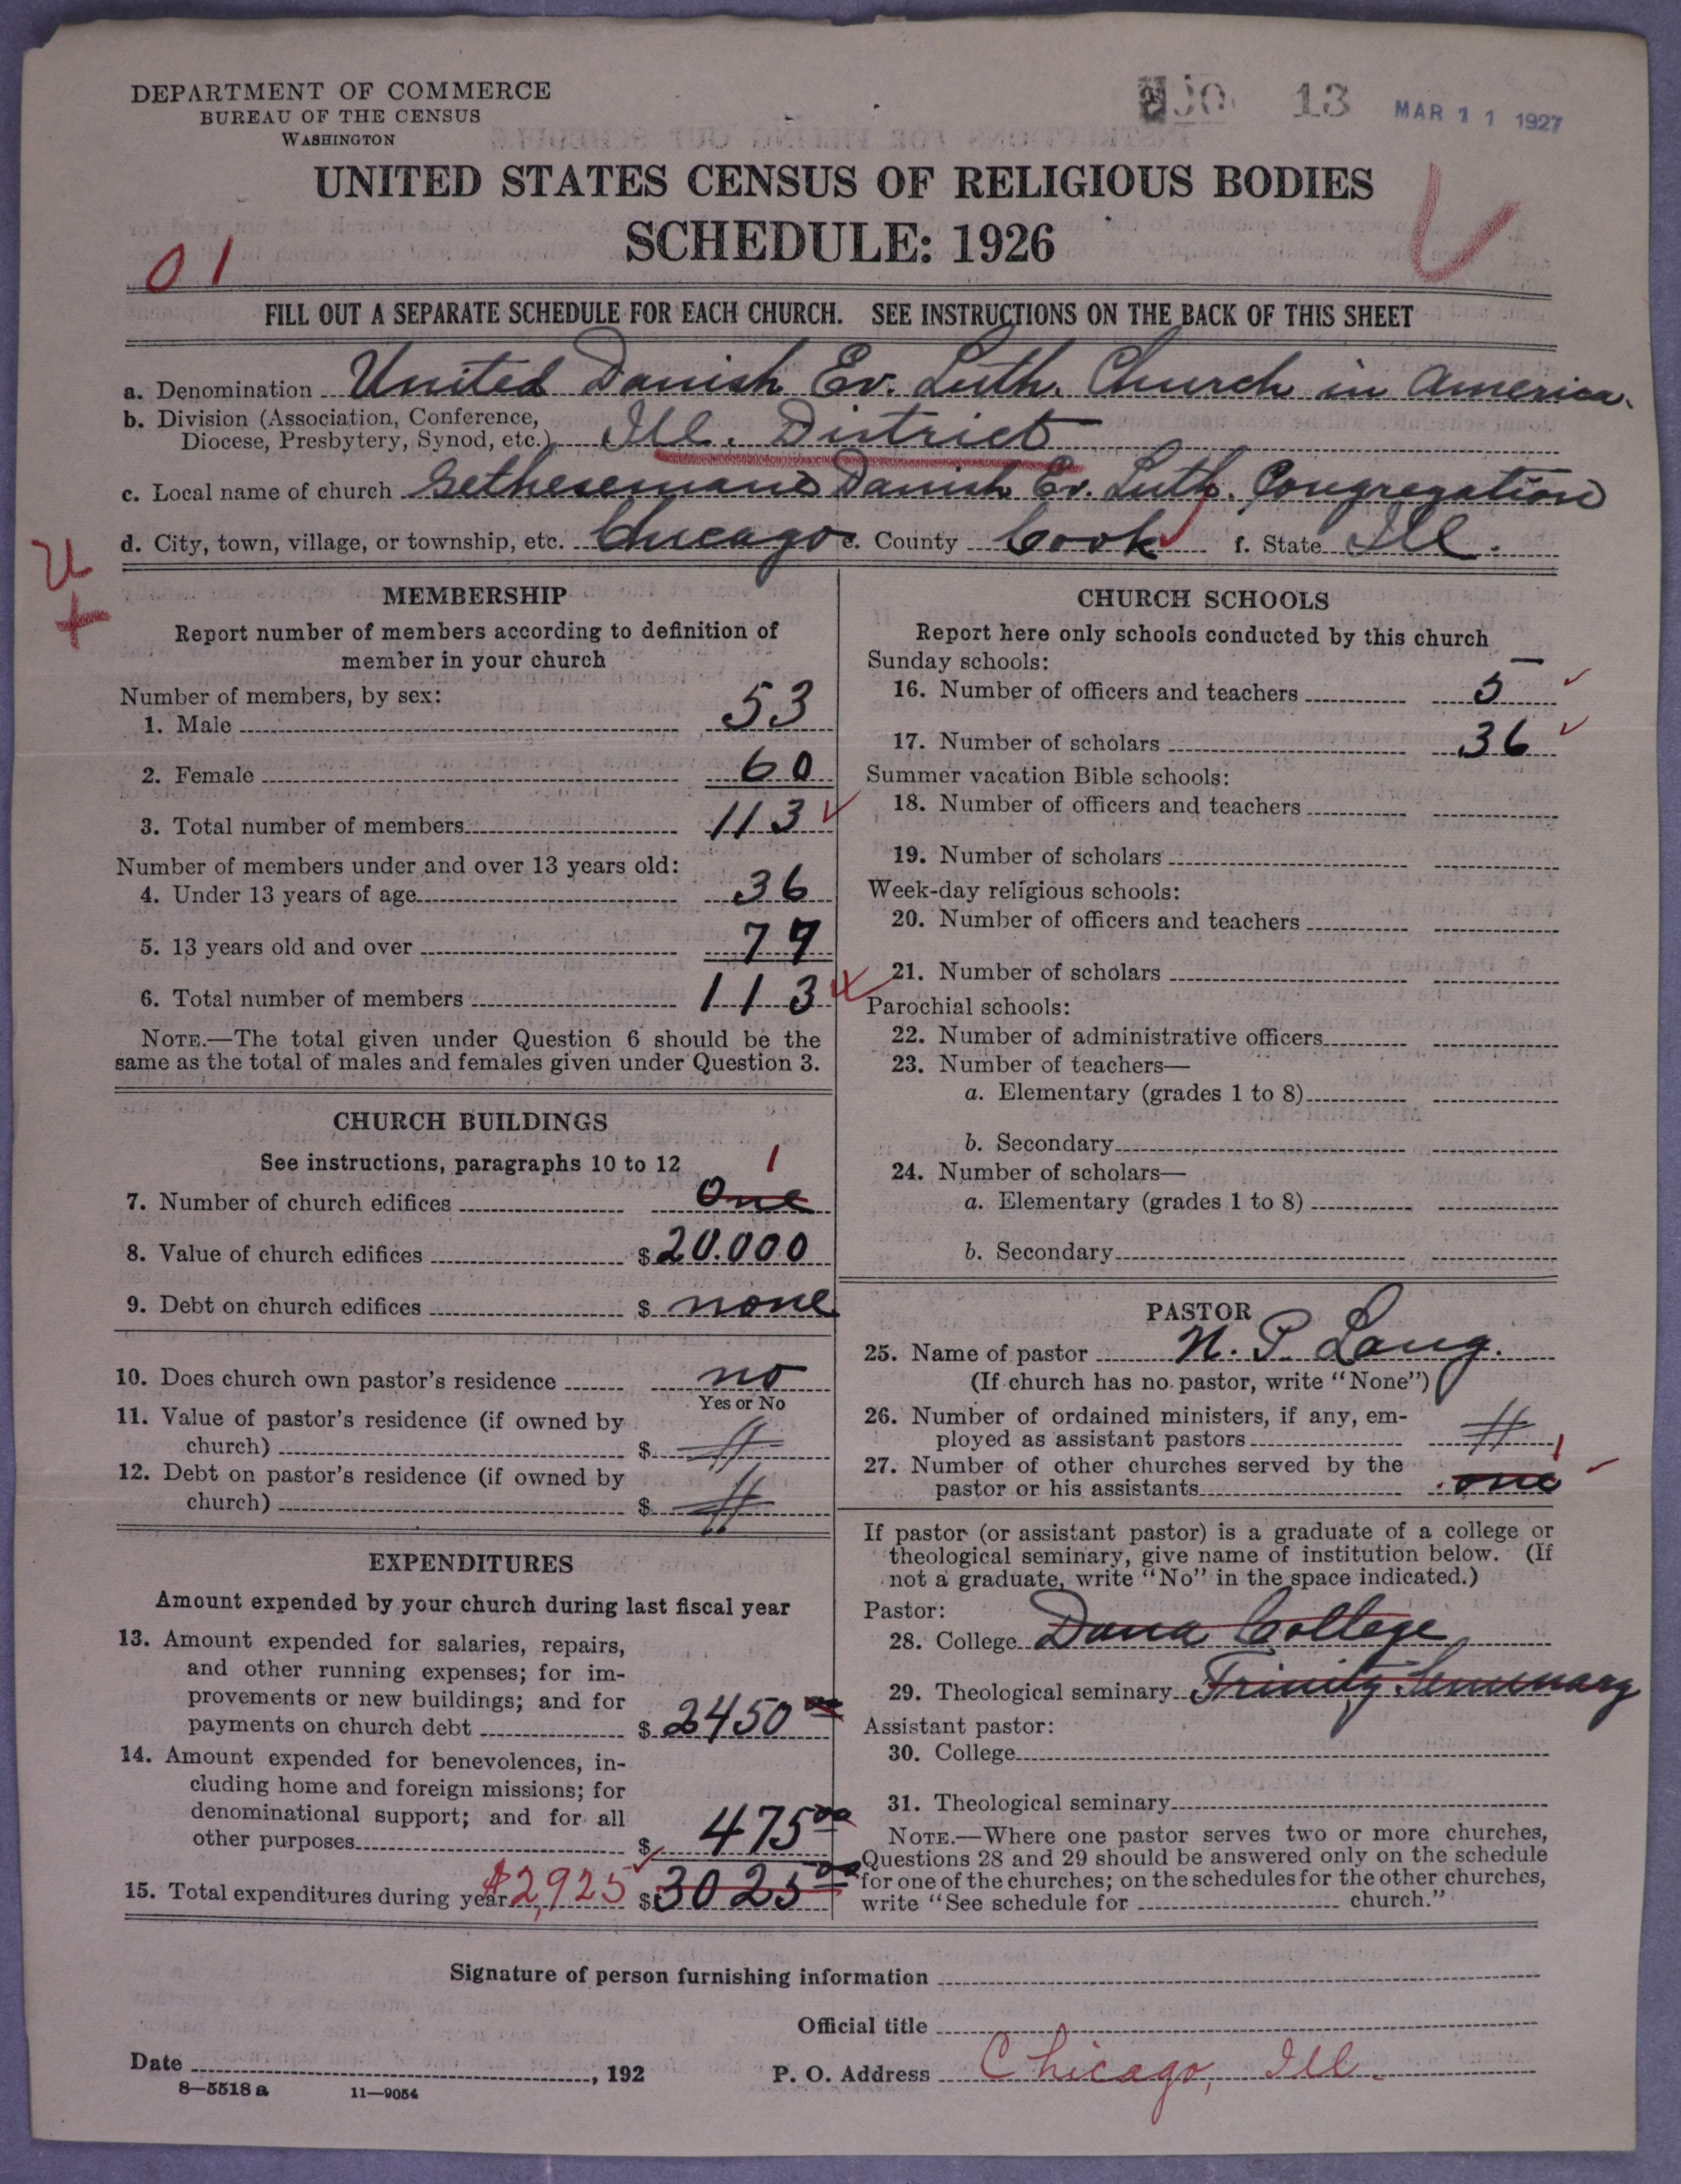 DEPARTMENT OF COMMERCE
BUREAU OF THE CENSUS
WASHINGTON
13 MAR 11 1927
UNITED STATES CENSUS OF RELIGIOUS BODIES
SCHEDULE: 1926
01
FILL OUT A SEPARATE SCHEDULE FOR EACH CHURCH. SEE INSTRUCTIONS ON THE BACK OF THIS SHEET
a. Denomination United Danish Ev. Luth. Church in America.
b. Division (Association, Conference,
Diocese, Presbytery, Synod, etc.) Ill. District
c. Local name of church Danish Ev. Luth. Congregation
d. City, town, village, or township, etc. Chicago e. County Cook f. State Ill.
MEMBERSHIP
Report number of members according to definition of
member in your church
Number of members, by sex:
1. Male 53
2. Female 60
3. Total number of members 113
Number of members under and over 13 years old:
4. Under 13 years of age 36
5. 13 years old and over 77
6. Total number of members 113
NOTE.—The total given under Question 6 should be the
same as the total of males and females given under Question 3.
CHURCH BUILDINGS
See instructions, paragraphs 10 to 12 1
7. Number of church edifices One
8. Value of church edifices $ 20.000
9. Debt on church edifices $ none
10. Does church own pastor's residence no
Yes or No
11. Value of pastor's residence (if owned by
church) $
12. Debt on pastor's residence (if owned by
church) $
EXPENDITURES
Amount expended by your church during last fiscal year
13. Amount expended for salaries, repairs,
and other running expenses; for im-
provements or new buildings; and for
payments on church debt $ 2450 00
14. Amount expended for benevolences, in-
cluding home and foreign missions; for
denominational support; and for all
other purposes $ 475 00
15. Total expenditures during year $2,925 $ 3025 00
CHURCH SCHOOLS
Report here only schools conducted by this church
Sunday schools:
16. Number of officers and teachers 5
17. Number of scholars 36
Summer vacation Bible schools:
18. Number of officers and teachers
19. Number of scholars
Week-day religious schools:
20. Number of officers and teachers
21. Number of scholars
Parochial schools:
22. Number of administrative officers
23. Number of teachers—
a. Elementary (grades 1 to 8)
b. Secondary
24. Number of scholars—
a. Elementary (grades 1 to 8)
b. Secondary
PASTOR
25. Name of pastor N. P. Lang.
(If church has no pastor, write "None")
26. Number of ordained ministers, if any, em-
ployed as assistant pastors
27. Number of other churches served by the 1
pastor or his assistants one
If pastor (or assistant pastor) is a graduate of a college or
theological seminary, give name of institution below. (If
not a graduate, write "No" in the space indicated.)
Pastor:
28. College Dana College
29. Theological seminary Trinity Seminary
Assistant pastor:
30. College
31. Theological seminary
NOTE.—Where one pastor serves two or more churches,
Questions 28 and 29 should be answered only on the schedule
for one of the churches; on the schedules for the other churches,
write "See schedule for church."
Signature of person furnishing information
Official title
Date , 192 P. O. Address Chicago, Ill.
8—5518 a 11—9054